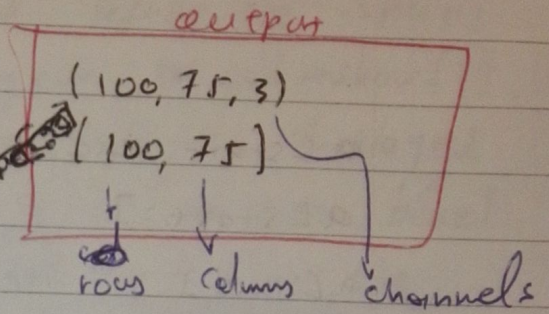 output
(100, 75, 3)
(100, 75)
rows columns channels